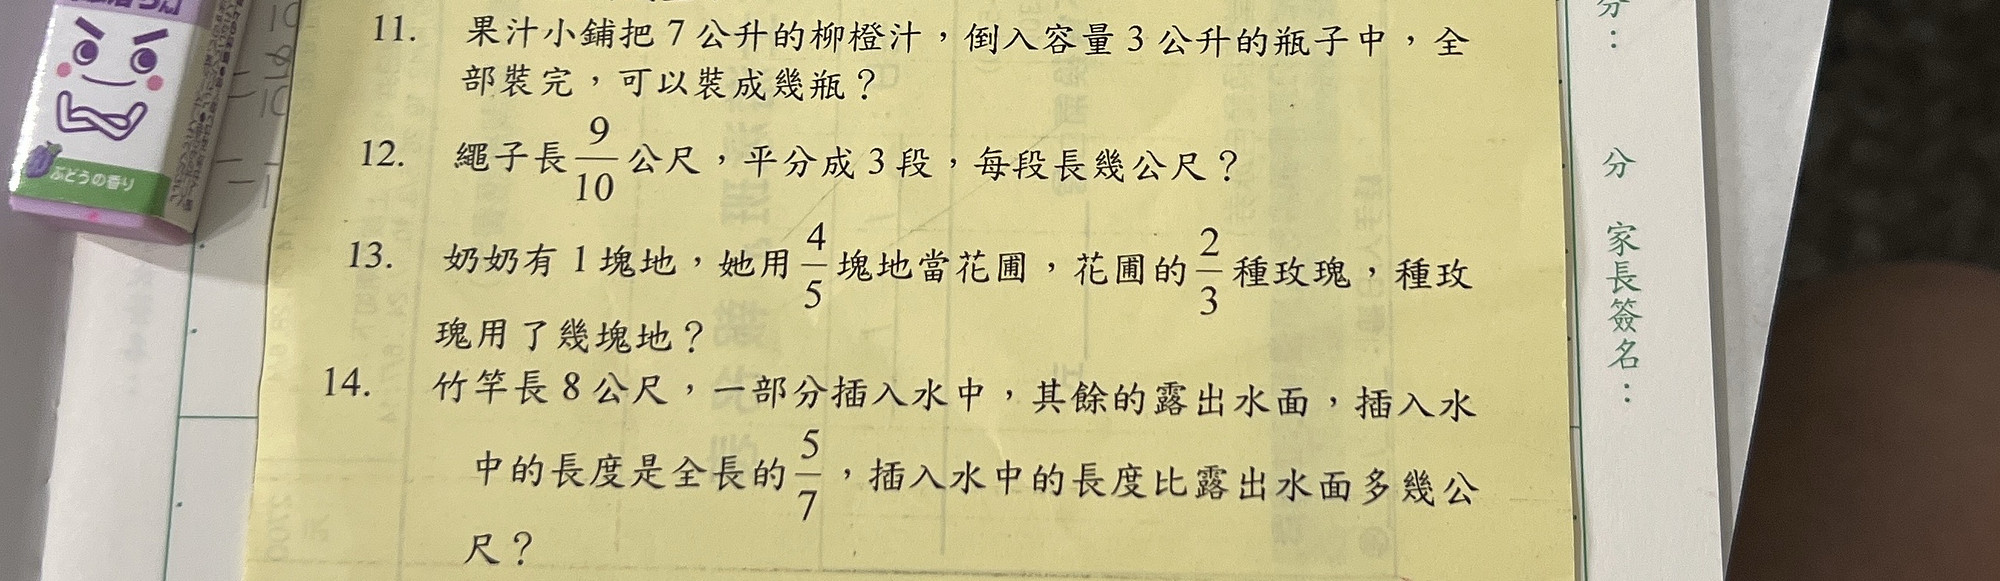 11. 果汁小鋪把 7 公升的柳橙汁，倒入容量 3 公升的瓶子中，全
部裝完，可以裝成幾瓶？
12. 繩子長 9/10 公尺，平分成 3 段，每段長幾公尺？
13. 奶奶有 1 塊地，她用 4/5 塊地當花圃，花圃的 2/3 種玫瑰，種玫
瑰用了幾塊地？
14. 竹竿長 8 公尺，一部分插入水中，其餘的露出水面，插入水
中的長度是全長的 5/7，插入水中的長度比露出水面多幾公
尺？
分：
分
家長簽名：
ぶどうの香り